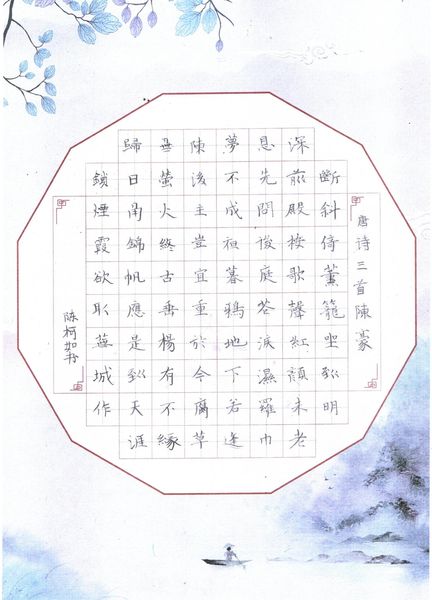 唐诗三首陳
斷斜倚薰籠坐到明
深前殿按歌聲紅顔未老
恩先問後庭淚濕羅巾
夢不成暮鴉地下若逢
陳後主豈宜重於今腐草
無螢火終古垂楊有不緣
歸日角錦帆應是到天涯
鎖煙霞欲取蕪城作
陈柯如书